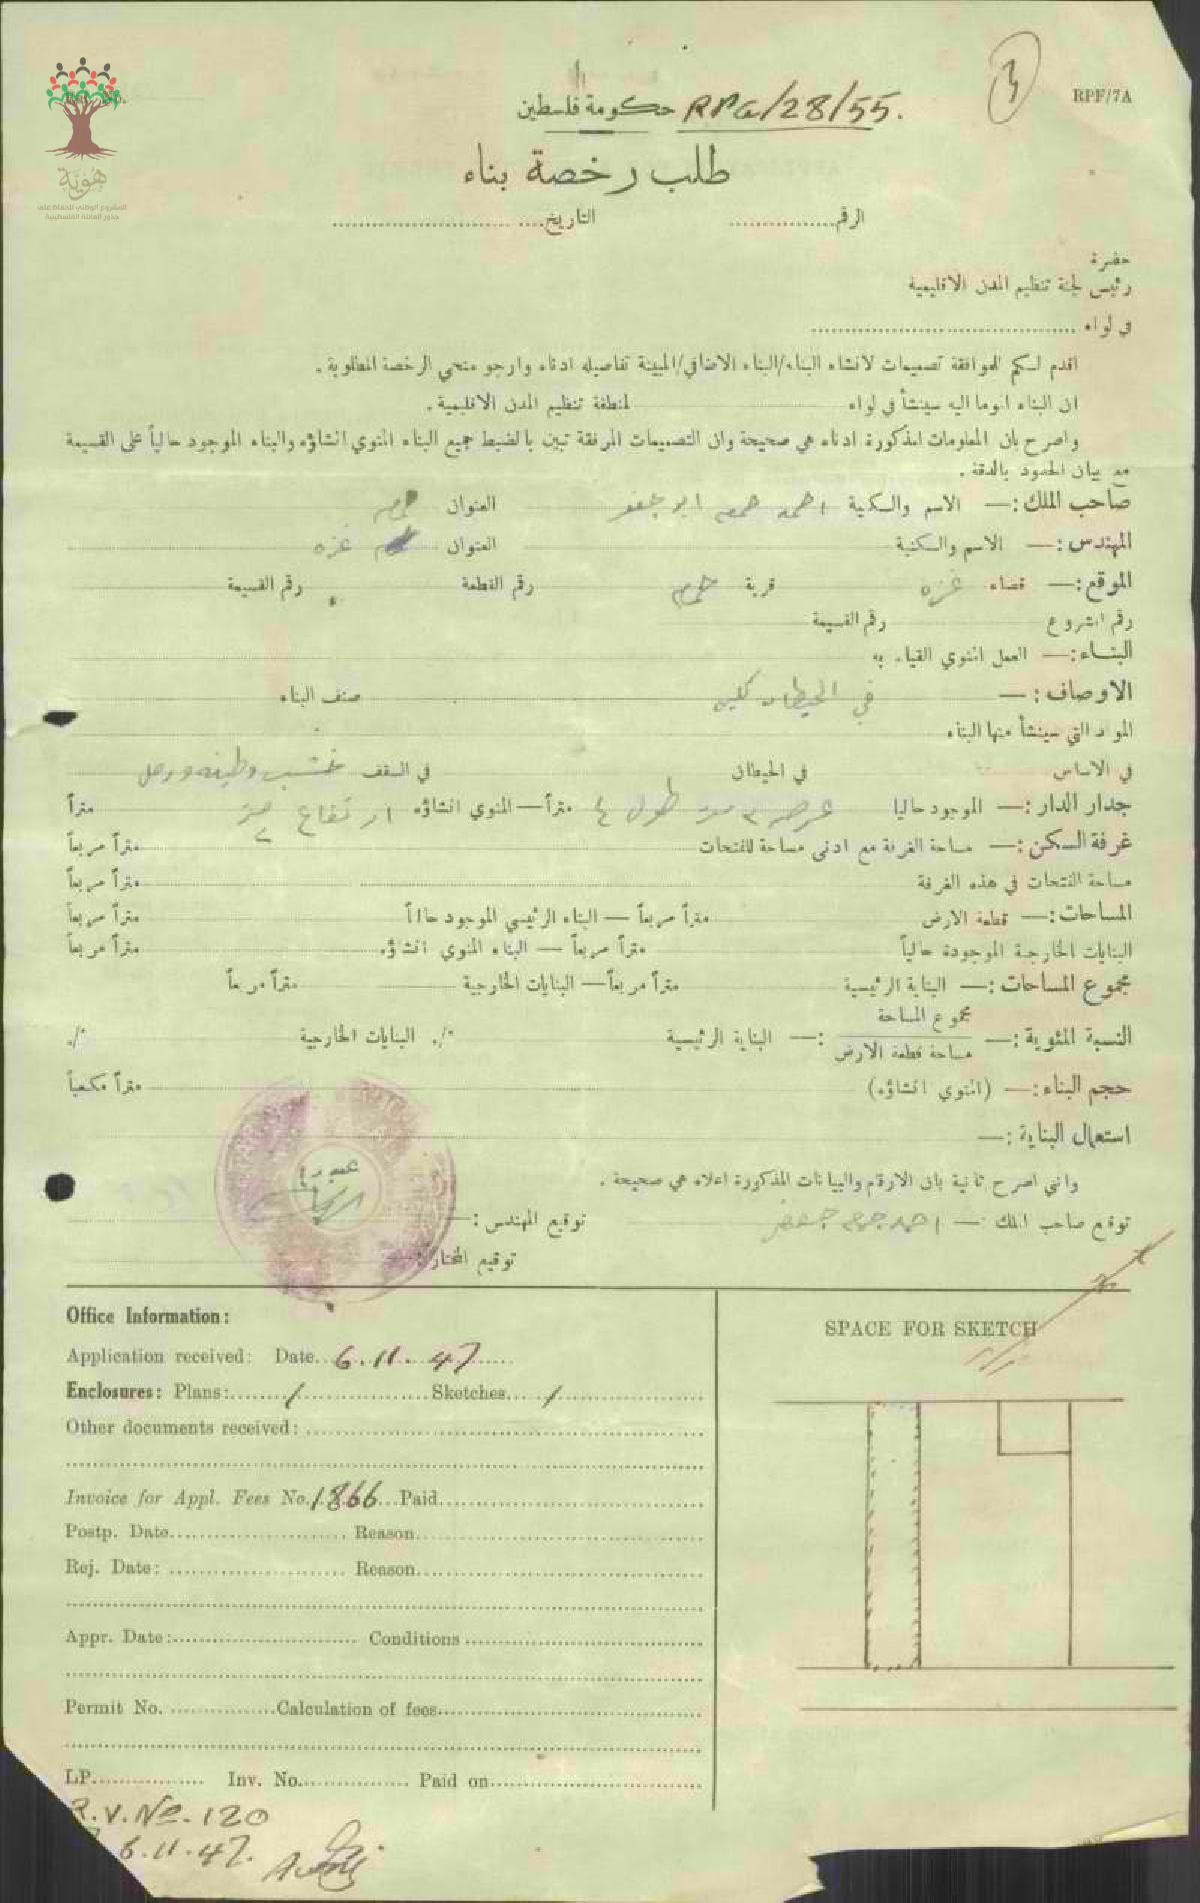 RPF/7A
حكومة فلسطين RPG/28/55.
هوية
المشروع الوطني للحفاظ على
جذور العائلة الفلسطينية
طلب رخصة بناء
الرقم............... التاريخ...............
حضرة
رئيس لجنة تنظيم المدن الاقليمية
في لواء ...............
اقدم لكم للموافقة تصميمات لانشاء البناء/البناء الاضافي/المبينة تفاصيله ادناه وارجو منحي الرخصة المطلوبة.
ان البناء الموما اليه سينشأ في لواء لمنطقة تنظيم المدن الاقليمية.
واصرح بان المعلومات المذكورة ادناه هي صحيحة وان التصميمات المرفقة تبين بالضبط جميع البناء المنوي انشاؤه والبناء الموجود حالياً على القسيمة
مع بيان الحدود بالدقة.
صاحب الملك:— الاسم والكنية احمد جمعه ابو جعفر العنوان
المهندس:— الاسم والكنية العنوان غزه
الموقع:— قضاء غزه قرية رقم القطعة رقم القسيمة
رقم المشروع رقم القسيمة
البناء:— العمل المنوي القيام به
الاوصاف:— في الحيطان صنف البناء
المواد التي سينشأ منها البناء
في الاساس في الحيطان في السقف خشب وطينه
جدار الدار:— الموجود حاليا عرضه ٣ متر طول ٤ متراً — المنوي انشاؤه ارتفاع متراً
غرفة السكن:— مساحة الغرفة مع ادنى مساحة للفتحات متراً مربعاً
مساحة الفتحات في هذه الغرفة متراً مربعاً
المساحات:— قطعة الارض متراً مربعاً — البناء الرئيسي الموجود حالاً متراً مربعاً
البنايات الخارجية الموجودة حالياً متراً مربعاً — البناء المنوي انشاؤه متراً مربعاً
مجموع المساحات:— البناية الرئيسية متراً مربعاً — البنايات الخارجية متراً مربعاً
النسبة المئوية:— مجموع المساحة
مساحة قطعة الارض :— البناية الرئيسية ٠/. البنايات الخارجية ٠/.
حجم البناء:— (المنوي انشاؤه) متراً مكعباً
استعمال البناية:—
واني اصرح ثانية بان الارقام والبيانات المذكورة اعلاه هي صحيحة.
توقيع صاحب الملك:— احمد جمعه جعفر توقيع المهندس:—
توقيع المختار:—
Office Information:
Application received: Date 6.11.47
Enclosures: Plans: / Sketches /
Other documents received:
Invoice for Appl. Fees No. 1866 Paid
Postp. Date Reason
Rej. Date: Reason
Appr. Date: Conditions
Permit No. Calculation of fees
LP Inv. No. Paid on
R.V.No. 120
6.11.47.
SPACE FOR SKETCH